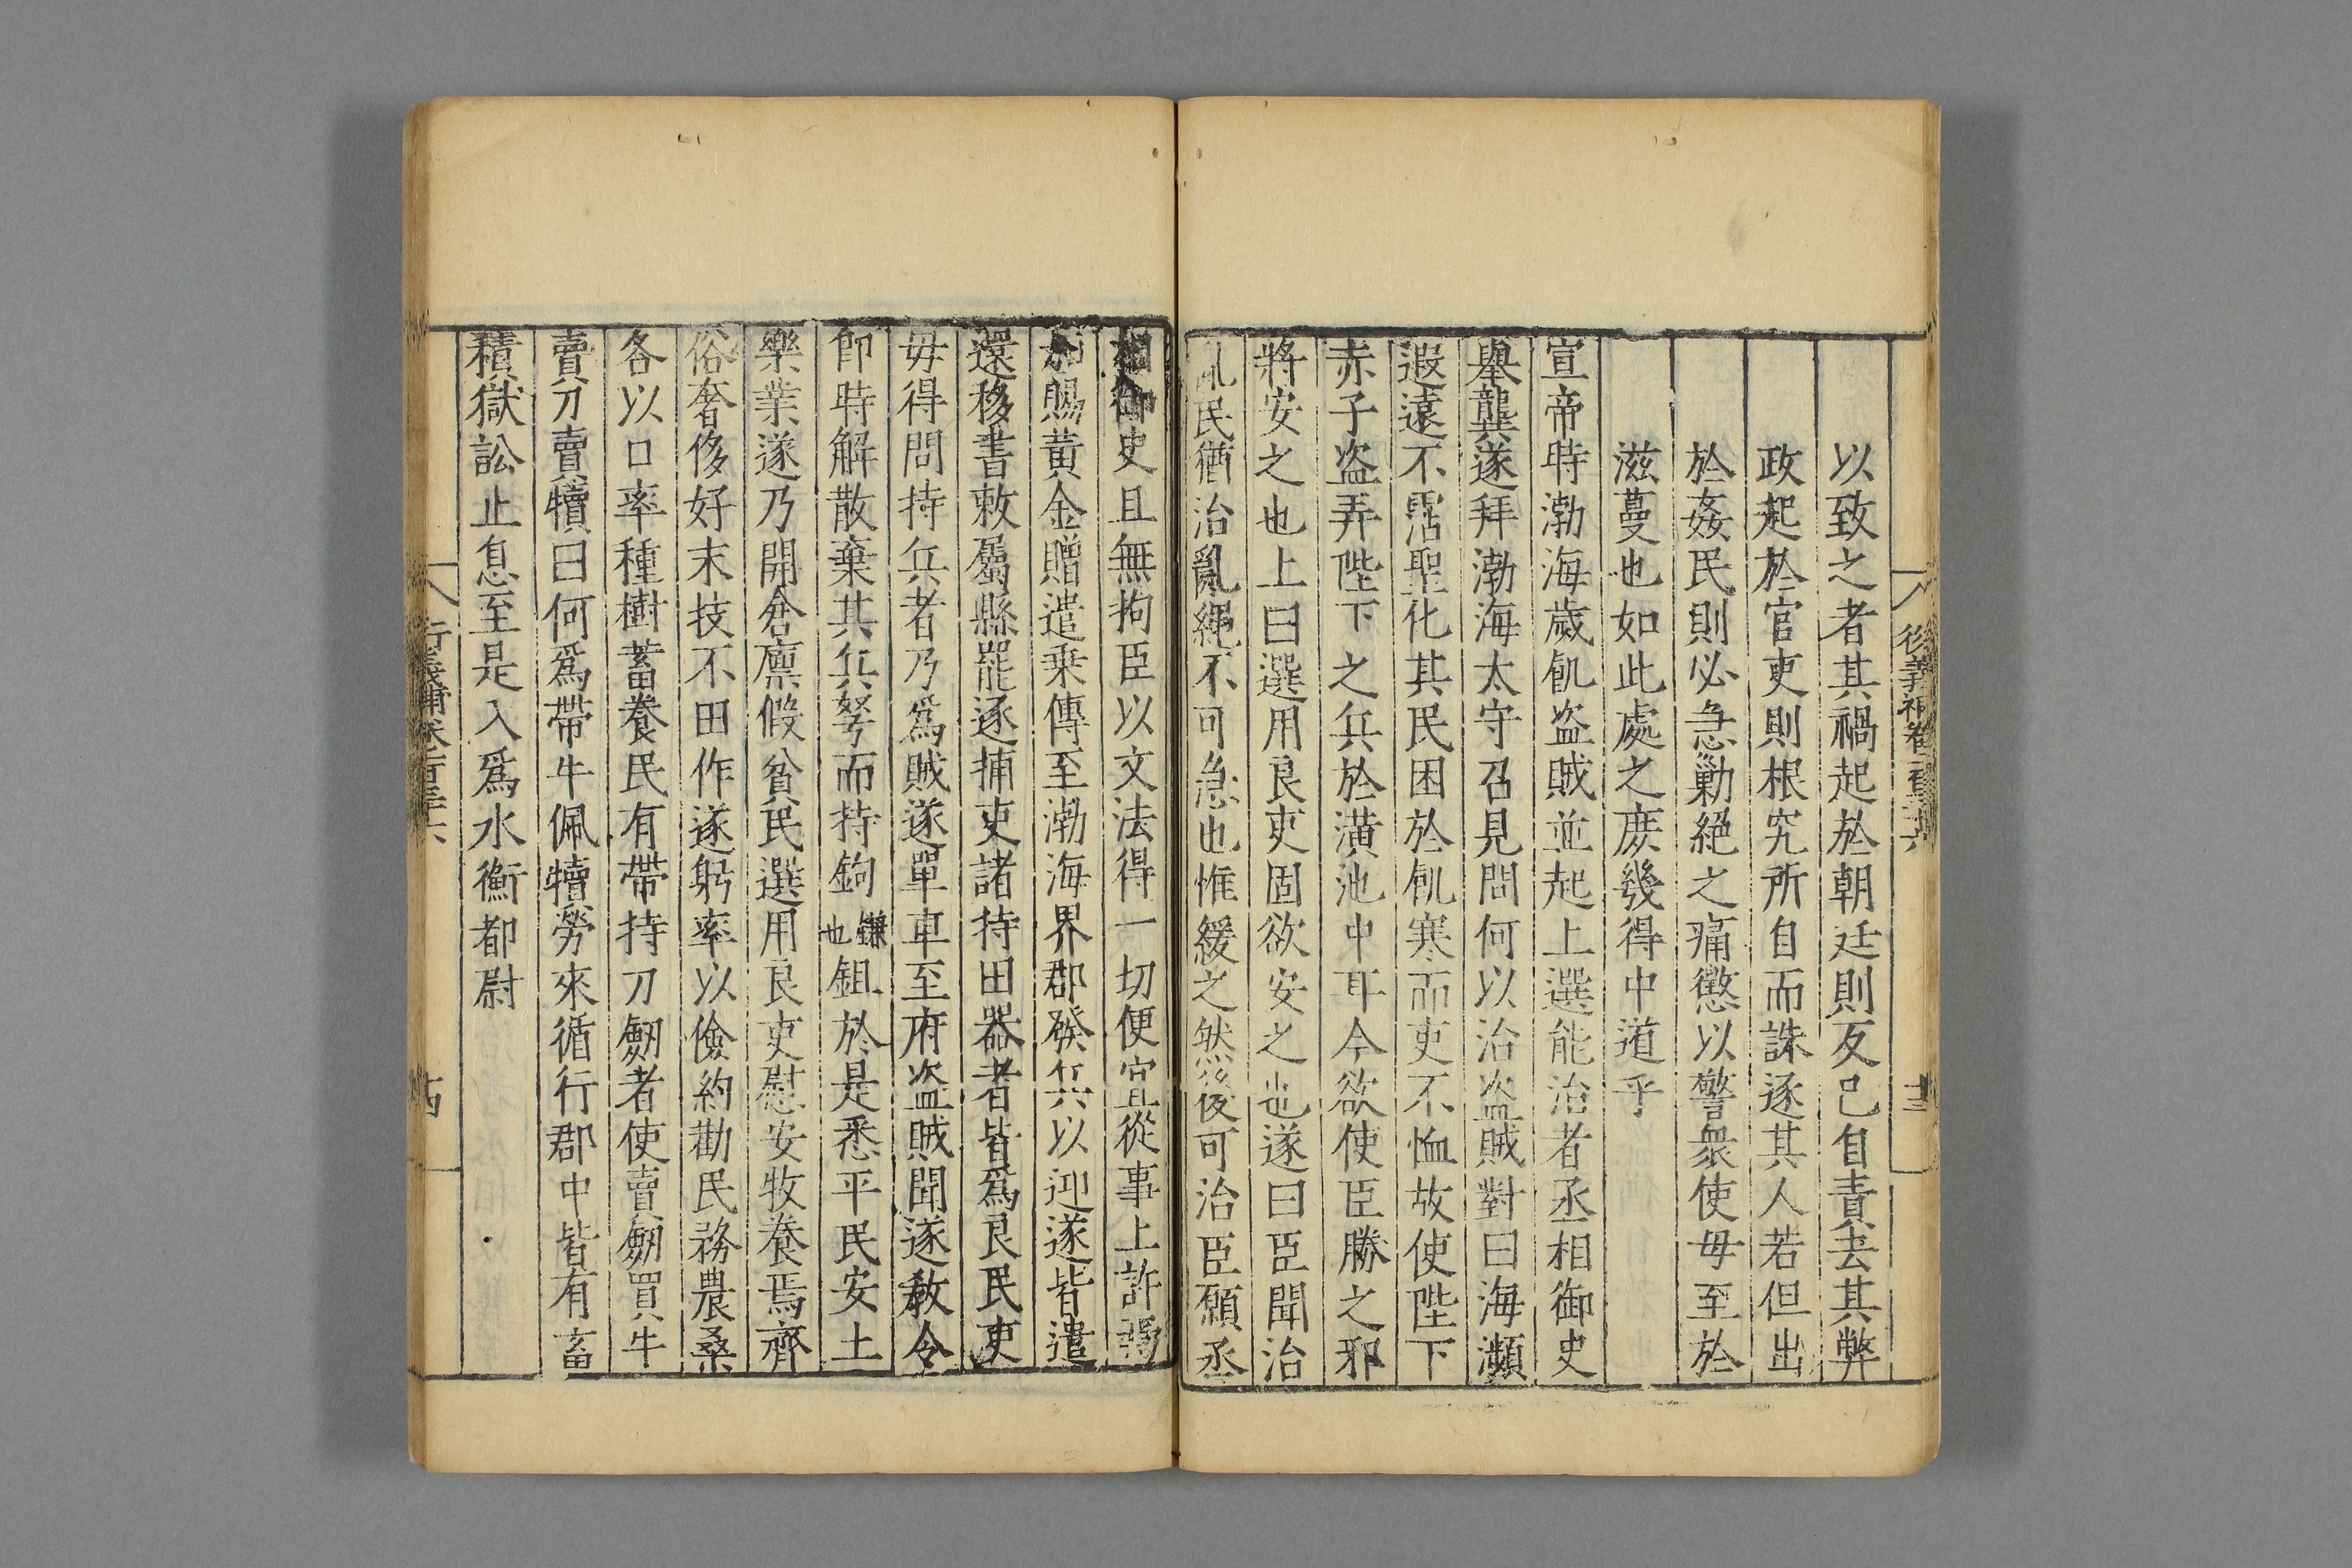 以致之者其禍起於朝廷則反己自責去其弊
政起於官吏則根究所自而誅逐其人若但出
於姦民則必急勦絕之痛懲以警衆使毋至於
滋蔓也如此處之庶幾得中道乎
宣帝時渤海歲飢盗賊並起上選能治者丞相御史
舉龔遂拜渤海太守召見問何以治盗賊對曰海瀕
遐遠不霑聖化其民困於飢寒而吏不恤故使陛下
赤子盗弄陛下之兵於潢池中耳今欲使臣勝之邪
將安之也上曰選用良吏固欲安之也遂曰臣聞治
亂民猶治亂繩不可急也惟緩之然後可治臣願丞
相御史且無拘臣以文法得一切便宜從事上許焉
加賜黃金贈遣乗傳至渤海界郡發兵以迎遂皆遣
還移書敕屬縣罷逐捕吏諸持田器者皆爲良民吏
毋得問持兵者乃爲賊遂單車至府盗賊聞遂教令
即時解散棄其兵弩而持鉤鎌也鉏於是悉平民安土
樂業遂乃開倉廪假貧民選用良吏慰安牧養焉齊
俗奢侈好末技不田作遂躬率以儉約勸民務農桑
各以口率種樹蓄養民有帶持刀劒者使賣劒買牛
賣刀賣犢曰何爲帶牛佩犢勞來循行郡中皆有畜
積獄訟止息至是入爲水衡都尉